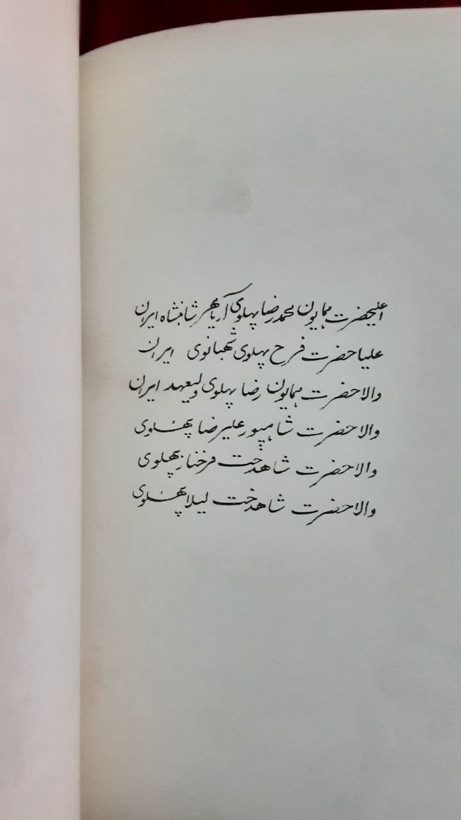 اعلیحضرت همایون محمدرضا پهلوی آریامهر شاهنشاه ایران
علیاحضرت فرح پهلوی شهبانوی ایران
والاحضرت همایون رضا پهلوی ولیعهد ایران
والاحضرت شاهپور علیرضا پهلوی
والاحضرت شاهدخت فرحناز پهلوی
والاحضرت شاهدخت لیلا پهلوی